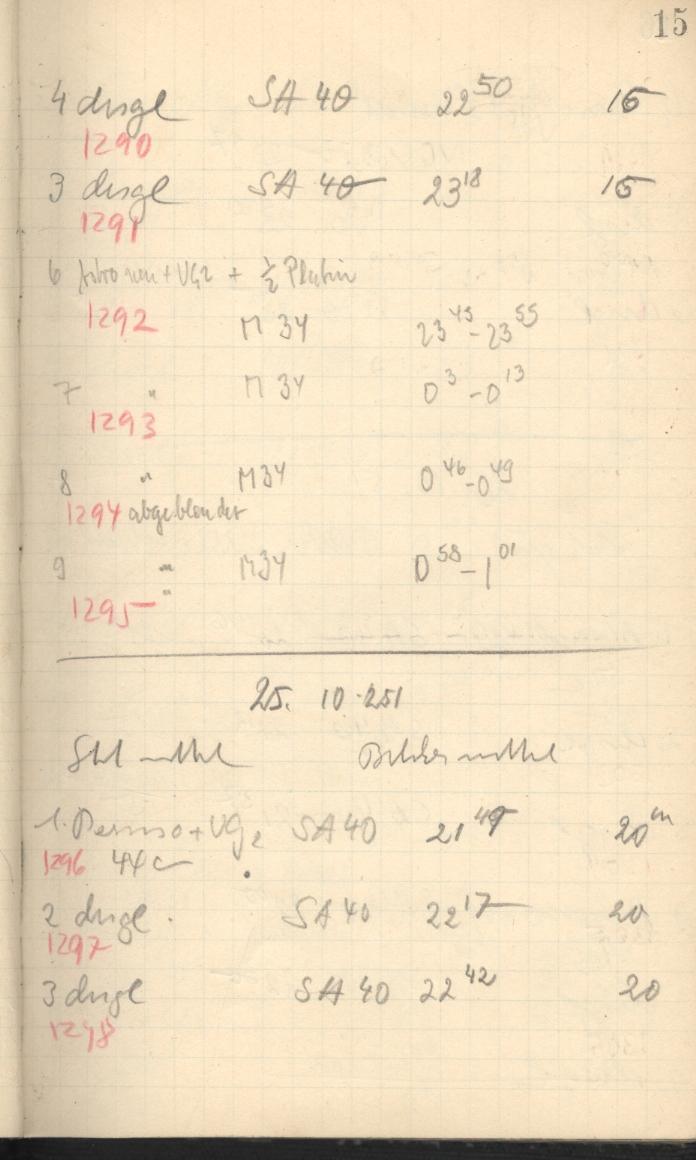 15
4 dsgl SA 40 22 50 15
1290
3 dsgl SA 40 23 18 15
1291
6 + VG2 + ½ Platin
1292 M 34 23 45 - 23 55
7 " M 34 0 3 - 0 13
1293
8 " M34 0 46 - 0 49
1294 abgeblendet
9 " M34 0 58 - 1 01
1295 "
25. 10. 251
1. + VG2 SA 40 21 47 20 m
1296 44 c
2 dsgl. SA 40 22 17 20
1297
3 dsgl SA 40 22 42 20
1298